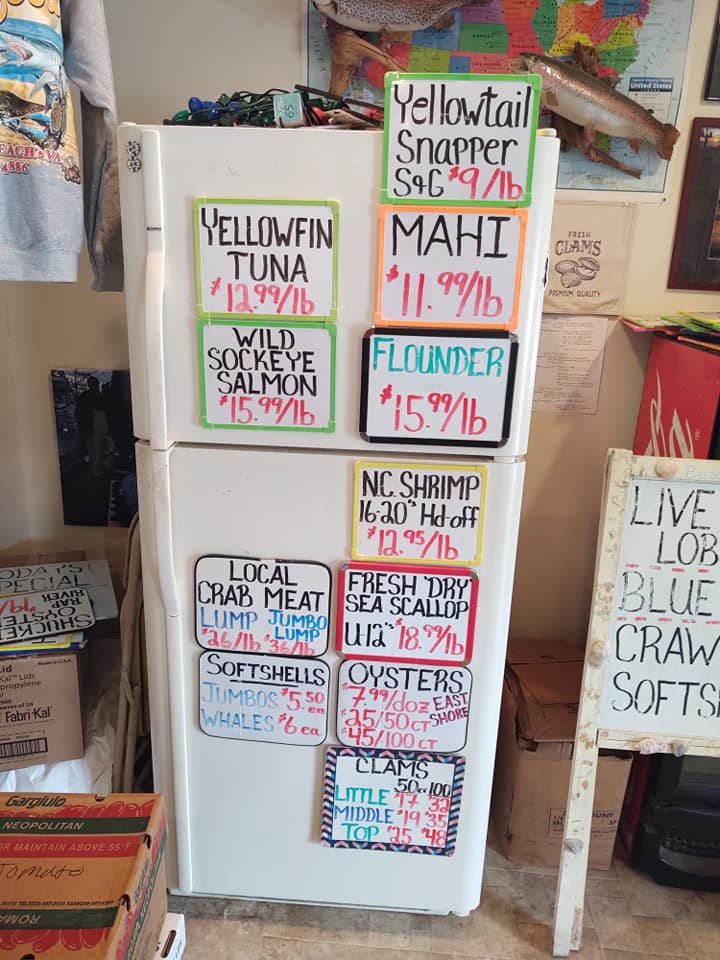 Yellowtail
Snapper
S&G $9/lb
YELLOWFIN
TUNA
$12.99/lb
MAHI
$11.99/lb
WILD
SOCKEYE
SALMON
$15.99/lb
FLOUNDER
$15.99/lb
N.C. SHRIMP
16-20's Hd-off
$12.95/lb
LOCAL
CRAB MEAT
LUMP JUMBO
LUMP
$26/lb $36/lb
FRESH "DRY"
SEA SCALLOP
U-12's $18.99/lb
SOFTSHELLS
JUMBOS $5.50
ea
WHALES $6 ea
OYSTERS
$7.99/doz EAST
SHORE
$25/50 CT
$45/100 CT
CLAMS
50 or 100
LITTLE $17 32
MIDDLE $19 35
TOP $25 $48
LIVE
LOB
BLUE
CRAW
SOFTS
FRESH
CLAMS
PREMIUM QUALITY
United States
65
EACH VA
4886
ODAY'S
PECIAL
SHUCKED
OYSTE
RAP
RIVER
Fabri-Kal
Gargiulo
NEOPOLITAN
OR MAINTAIN ABOVE 55°F
Tomato
ROMA